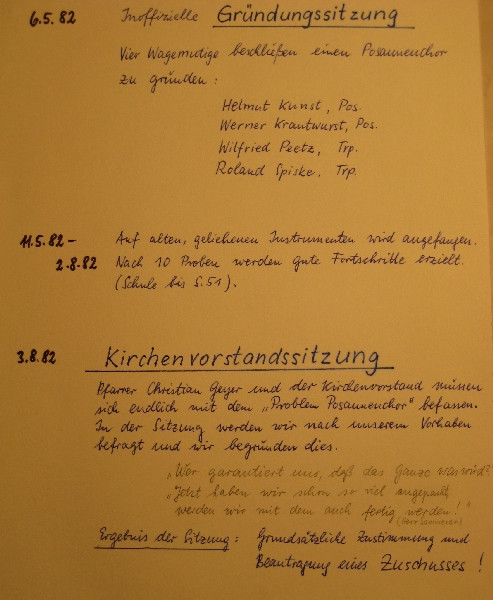 6.5.82 Inoffizielle Gründungssitzung
Vier Wagemutige beschließen einen Posaunenchor
zu gründen:
Helmut Kunst, Pos.
Werner Krautwurst, Pos.
Wilfried Peetz, Trp.
Roland Spiske, Trp.
11.5.82 - Auf alten, geliehenen Instrumenten wird angefangen.
2.8.82 Nach 10 Proben werden gute Fortschritte erzielt.
(Schule bis S.51).
3.8.82 Kirchenvorstandssitzung
Pfarrer Christian Geyer und der Kirchenvorstand müssen
sich endlich mit dem „Problem Posaunenchor" befassen.
In der Sitzung werden wir nach unserem Vorhaben
befragt und wir begründen dies.
„Wer garantiert uns, daß das Ganze was wird?"
„Jetzt haben wir schon so viel angepackt,
werden wir mit dem auch fertig werden!"
(Herr
Ergebnis der Sitzung: Grundsätzliche Zustimmung und
Beantragung eines Zuschusses!